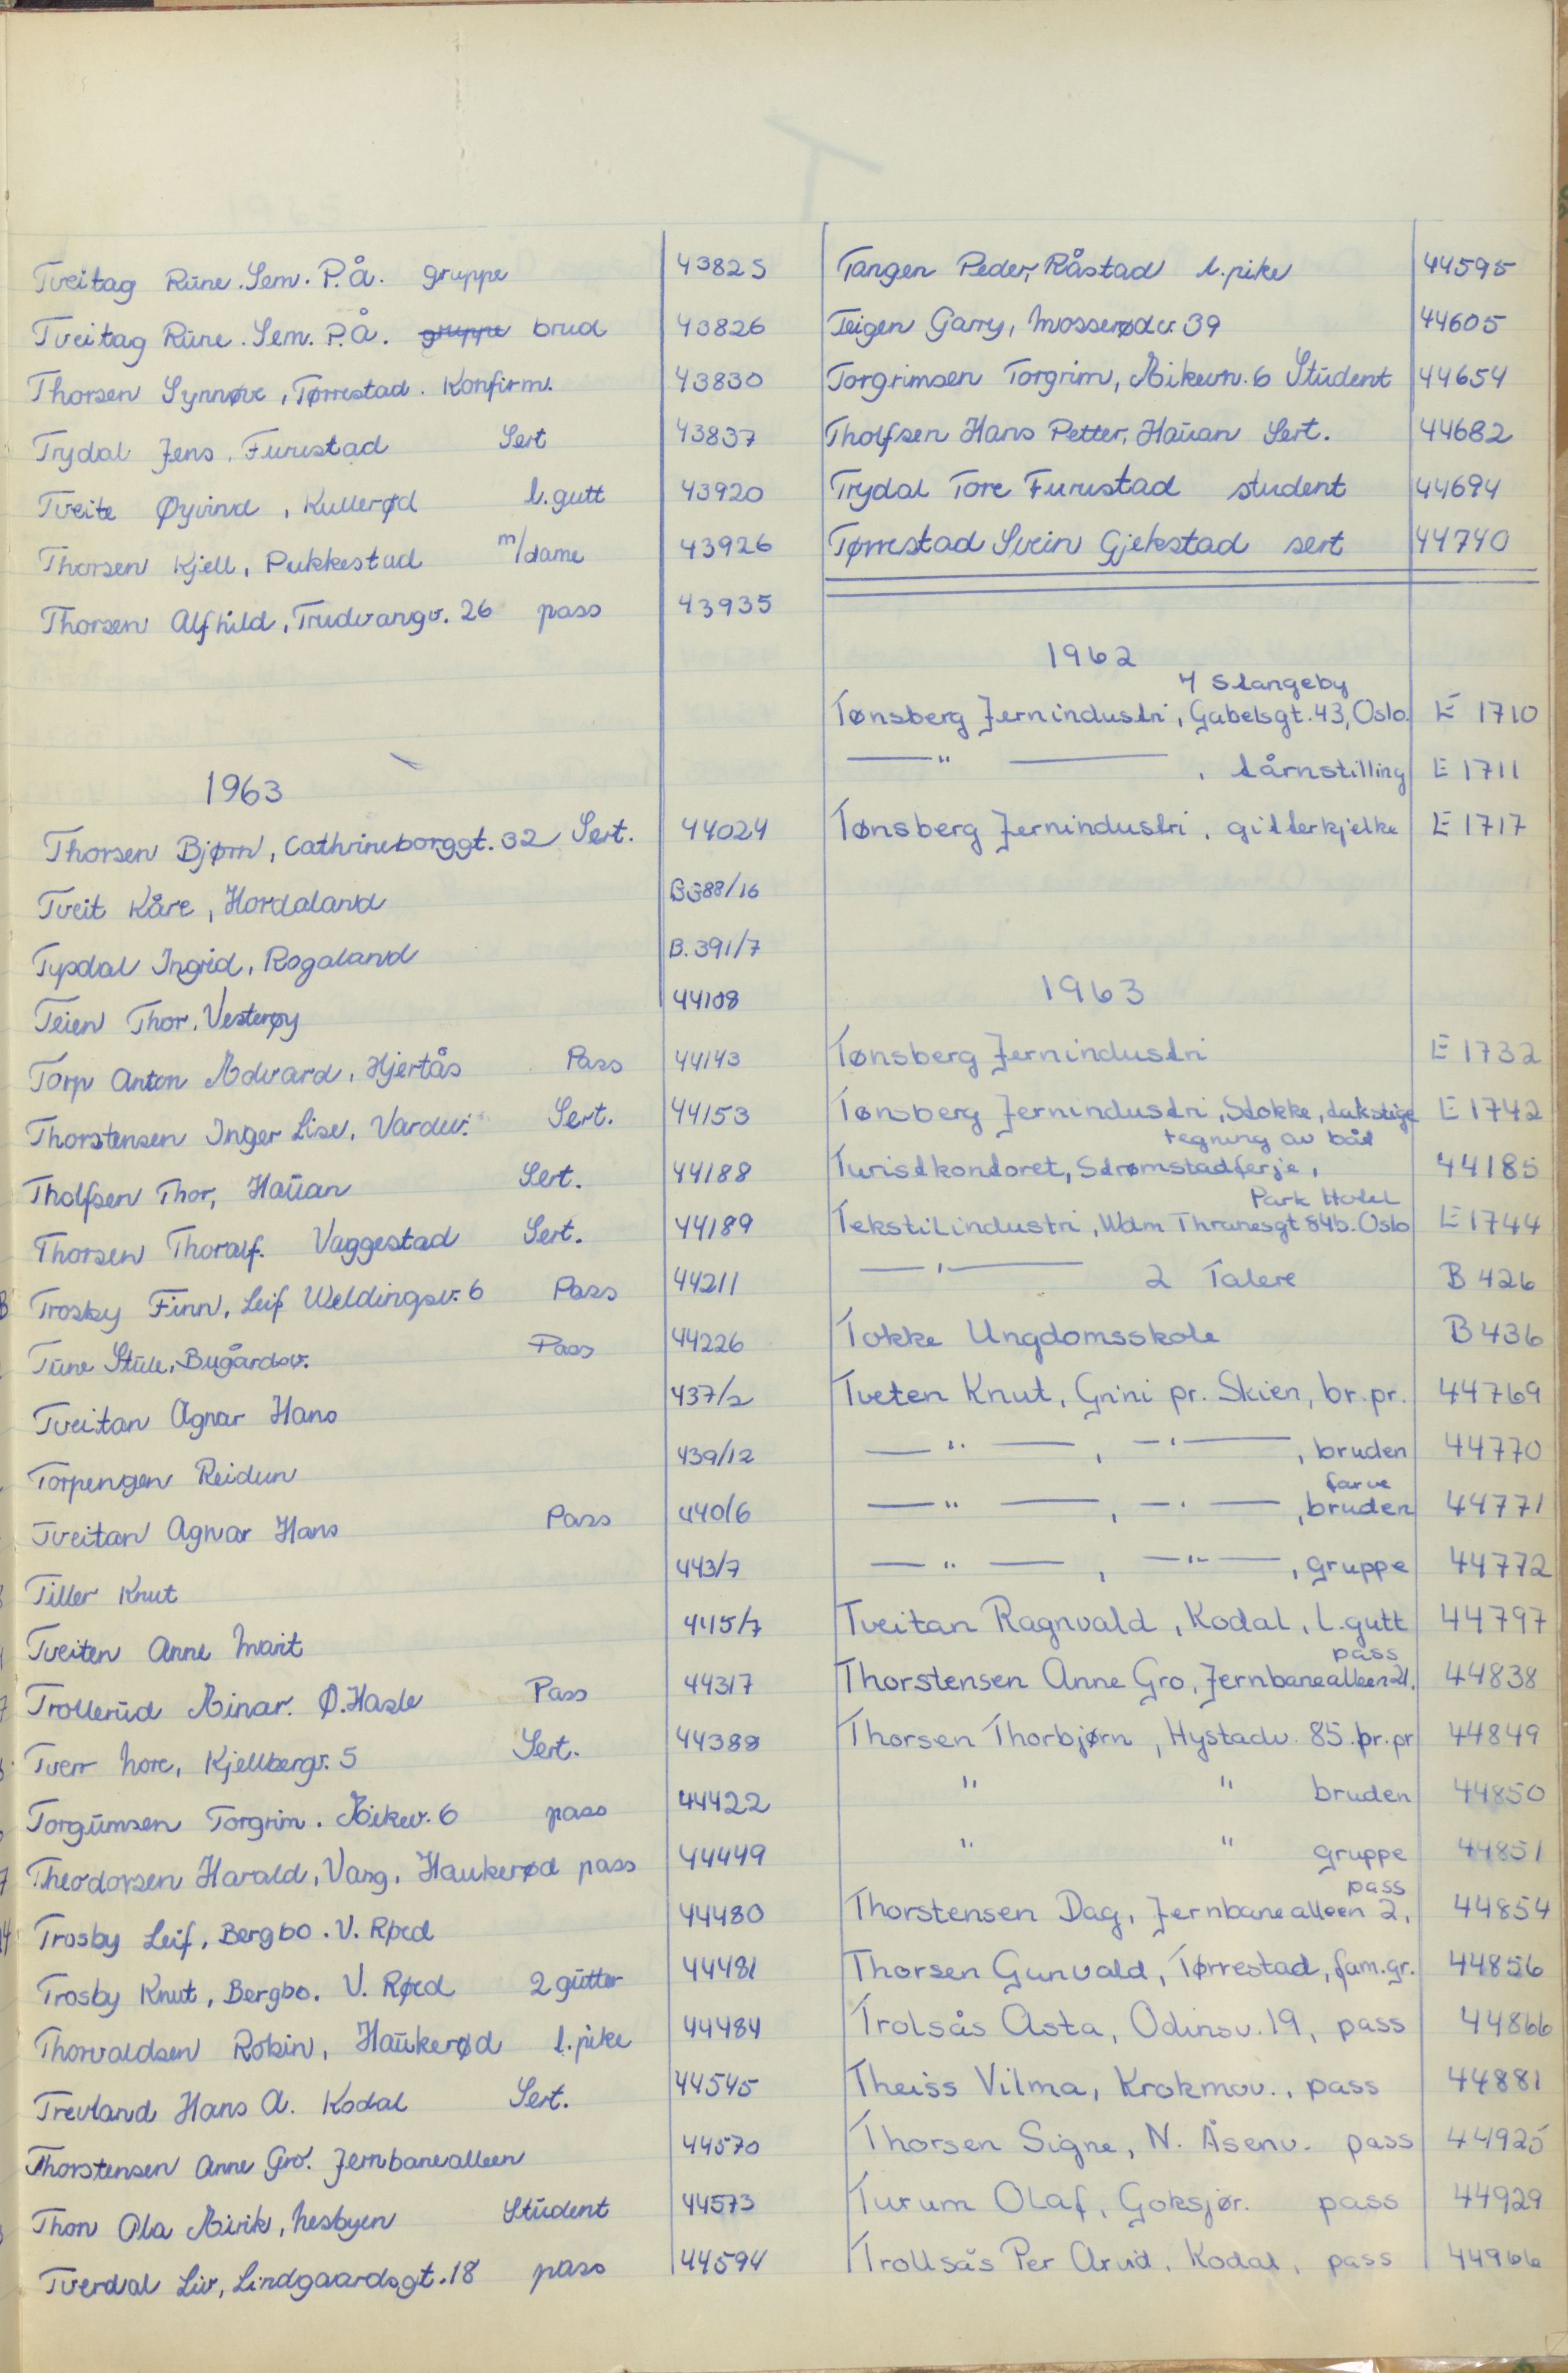 Tveitag Rune. Sem. P.Å. gruppe 43825
Tveitag Rune. Sem. P.Å. gruppe brud 43826
Thorsen Synnøve, Tørrestad. Konfirm. 43830
Trydal Jens, Furustad Sert 43837
Tveite Øyvind, Kullerød l.gutt 43920
Thorsen Kjell, Pukkestad m/dame 43926
Thorsen Alfhild, Trudvangv. 26 pass 43935
1963
Thorsen Bjørn, Cathrineborggt. 32 Sert. 44024
Tveit Kåre, Hordaland B388/16
Typdal Ingrid, Rogaland B.391/7
Teien Thor, Vesterøy 44108
Torp Anton Edvard, Hjertås Pass 44143
Thorstensen Inger Lise, Vardev. Sert. 44153
Tholfsen Thor, Hauan Sert. 44188
Thorsen Thoralf. Vaggestad Sert. 44189
Trosby Finn, Leif Weldingsv. 6 Pass 44211
Tune Ståle, Bugårdsv. Pass 44226
Tveitan Agnar Hans 437/2
Torpengen Reidun 439/12
Tveitan Agnar Hans Pass 440/6
Tiller Knut 443/7
Tveiten Anne Marit 445/7
Trollerud Einar. Ø. Hasle Pass 44317
Tverr Nore, Kjellbergv. 5 Sert. 44388
Torgrimsen Torgrim. Eikev. 6 pass 44422
Theodorsen Harald, Vang, Haukerød pass 44449
Trosby Leif, Bergbo. V. Røed 44480
Trosby Knut, Bergbo. V. Røed 2 gutter 44481
Thorvaldsen Robin, Haukerød l.pike 44484
Trevland Hans A. Kodal Sert. 44545
Thorstensen Anne Gro. Jernbanealleen 44570
Thon Ola Eirik, Nesbyen Student 44573
Tverdal Liv, Lindgaardsgt. 18 pass 44594
Tangen Peder, Råstad l.pike 44595
Teigen Garry, Mosserødv. 39 44605
Torgrimsen Torgrim, Eikevn. 6 Student 44654
Tholfsen Hans Petter, Hauan Sert. 44682
Trydal Tore Furustad student 44694
Tørrestad Svein Gjekstad sert 44740
1962
4 Slangeby
Tønsberg Jernindustri, Gabelsgt. 43, Oslo. E 1710
— " — , tårnstilling E 1711
Tønsberg Jernindustri, gitterkjelke E 1717
1963
Tønsberg Jernindustri E 1732
Tønsberg Jernindustri, Stokke, takstige E 1742
tegning av båt
Turistkontoret, Strømstadferje, 44185
Park Hotel
Tekstilindustri, Wdm Thranesgt 84b. Oslo E 1744
— " — 2 Talere B 426
Tokke Ungdomsskole B 436
Tveten Knut, Grini pr. Skien, br. pr. 44769
— " — , — " — , bruden 44770
farve
— " — , — " — , bruden 44771
— " — , — " — , gruppe 44772
Tveitan Ragnvald, Kodal, l.gutt 44797
pass
Thorstensen Anne Gro, Jernbanealleen 21. 44838
Thorsen Thorbjørn, Hystadv. 85. br. pr 44849
" " bruden 44850
" " gruppe 44851
pass
Thorstensen Dag, Jernbanealleen 2, 44854
Thorsen Gunvald, Tørrestad, fam.gr. 44856
Trolsås Asta, Odinsv. 19, pass 44866
Theiss Vilma, Krokmov., pass 44881
Thorsen Signe, N. Åsenv. pass 44925
Turum Olaf, Goksjør. pass 44929
Trollsås Per Arvid, Kodal, pass 44966